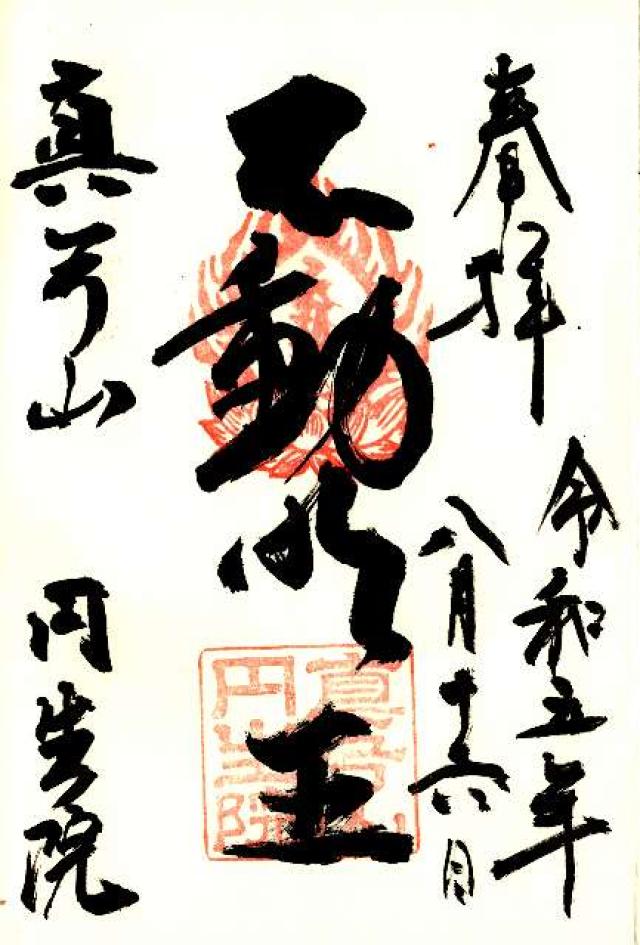 奉拝
令和五年
八月十六日
不動明王
真弓山
円生院
真弓山
円生院